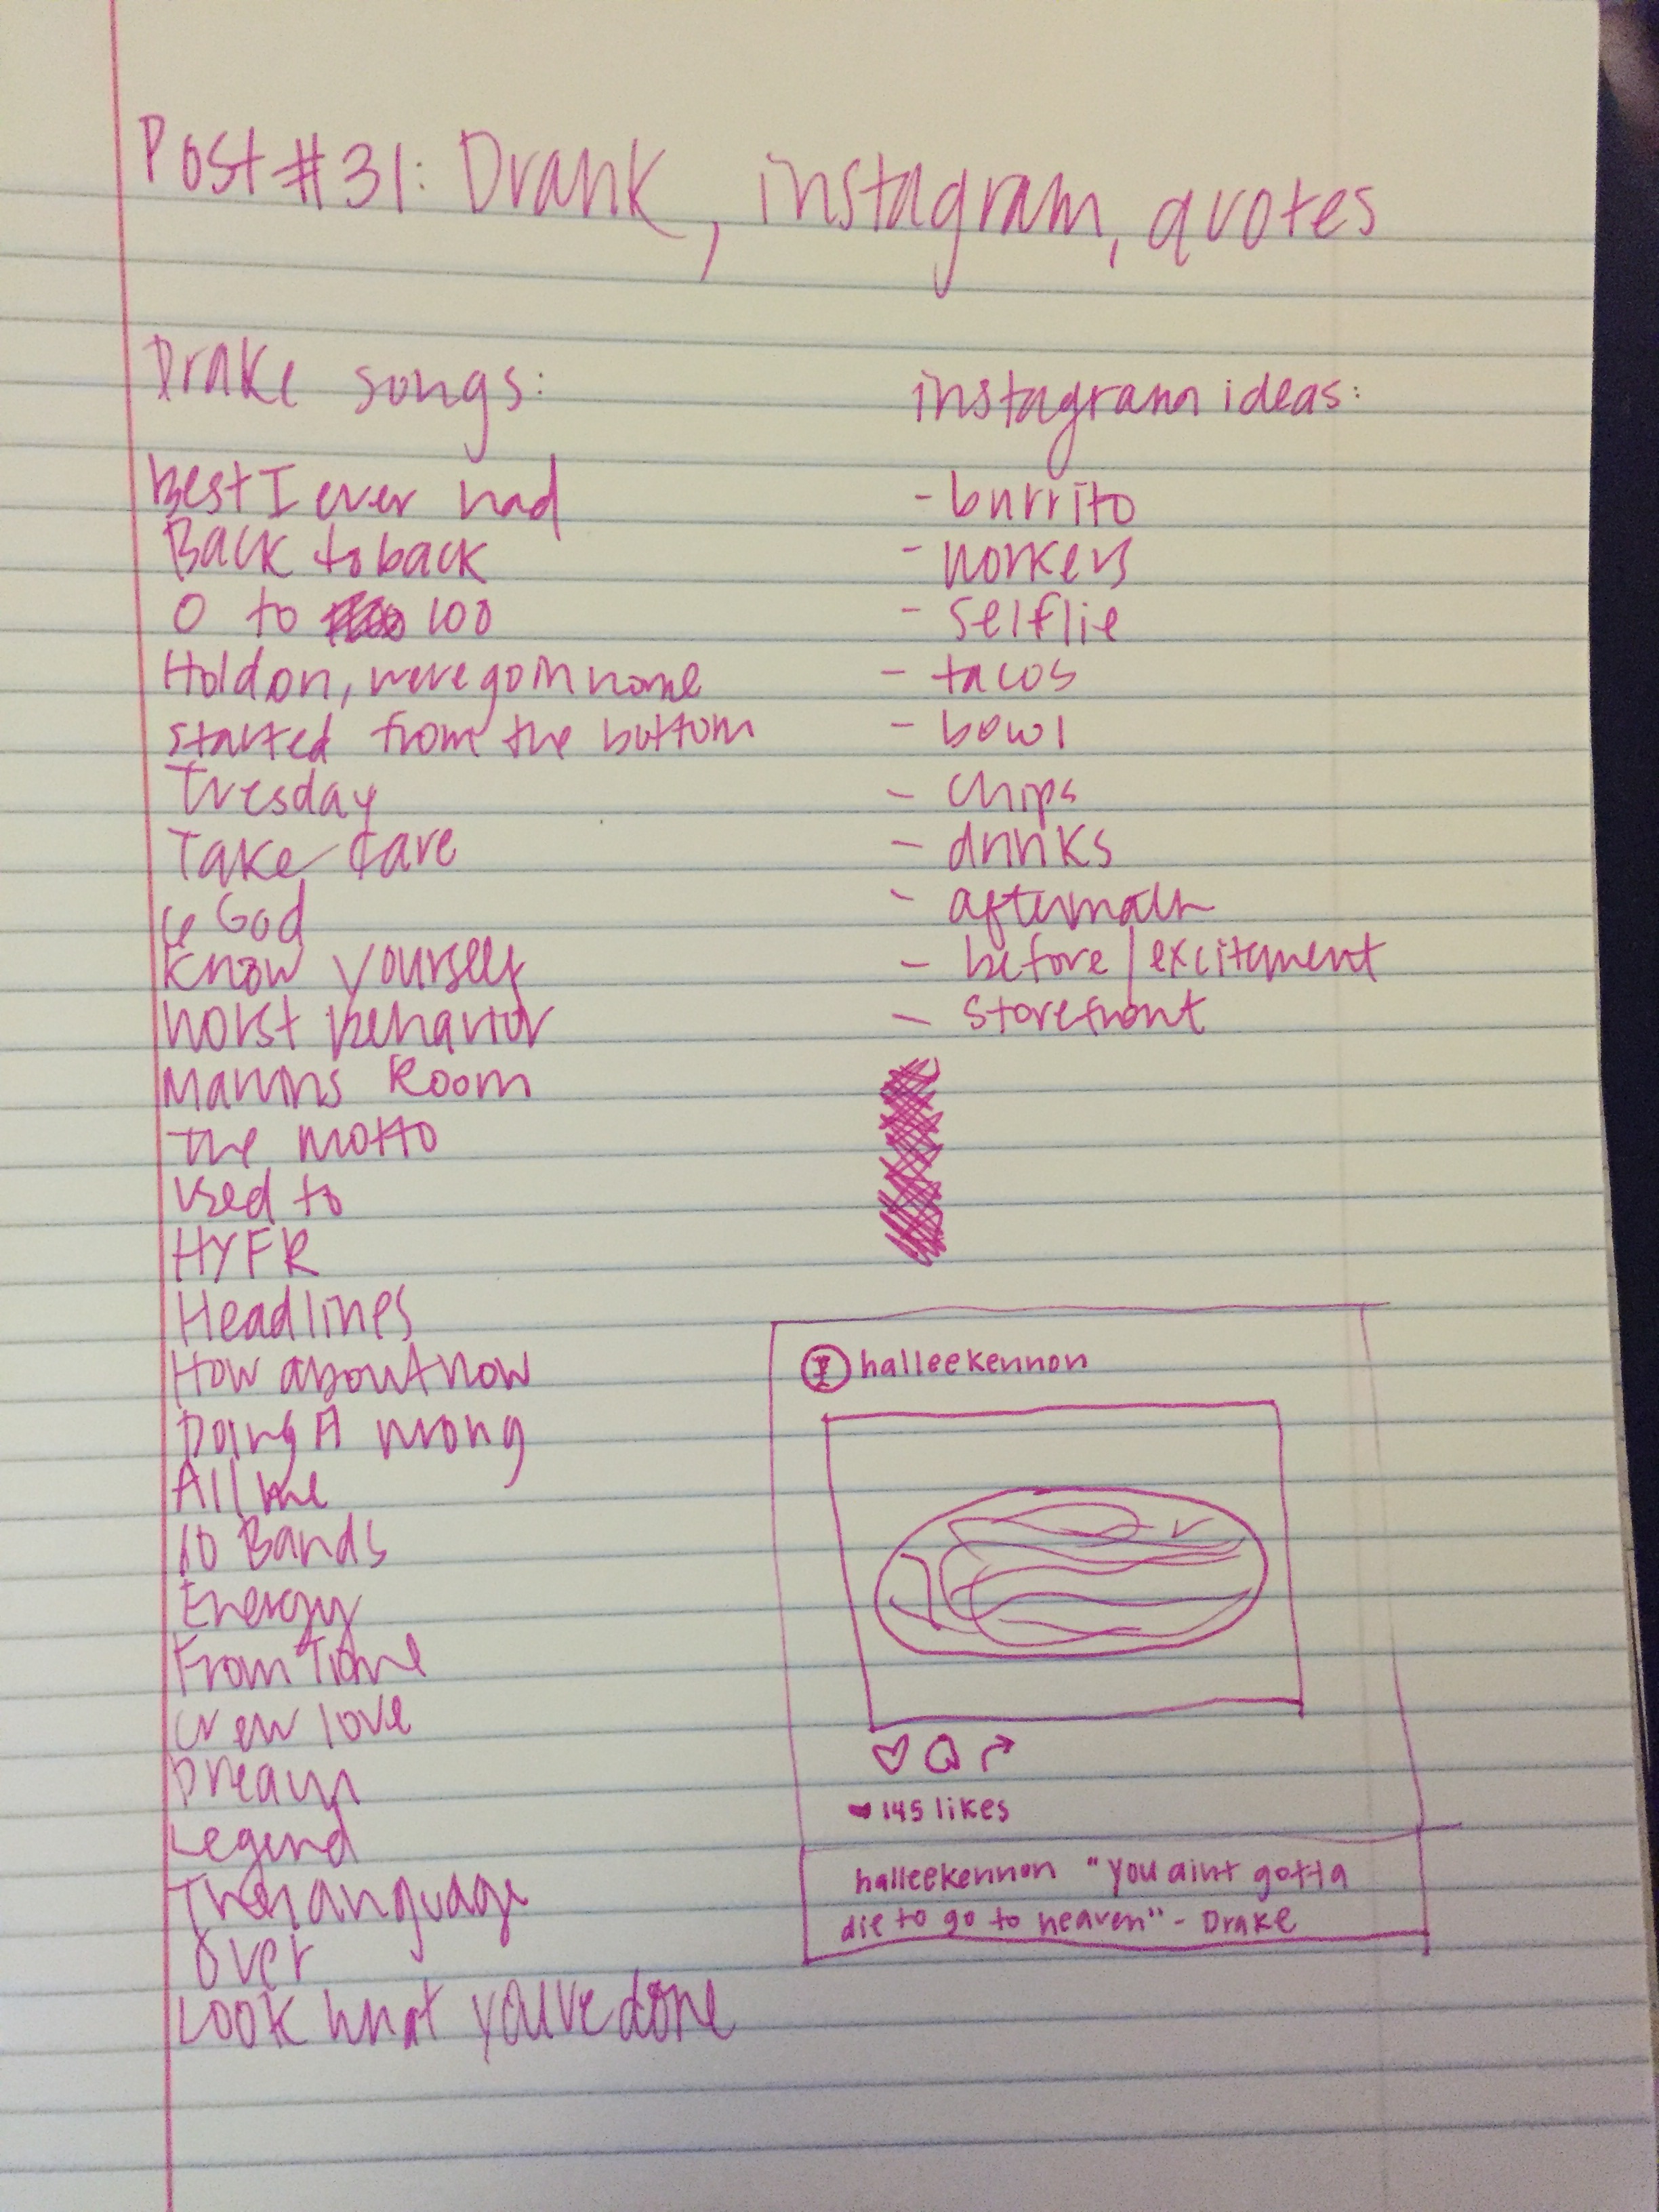 Post #31: Drank, instagram, quotes
Drake songs:
Best I ever had
Back to back
0 to 100
Hold on, were goin home
started from the bottom
Tuesday
Take Care
6 God
Know yourself
Worst behavior
Marvins Room
The motto
Used to
HYFR
Headlines
How about now
Doing A wrong
All me
10 Bands
Energy
From Time
crew love
Dreams
Legend
The language
Over
Look what you've done
instagram ideas:
- burrito
- workers
- selflie
- tacos
- bowl
- chips
- drinks
- aftermath
- before/excitement
- storefront
halleekennon
145 likes
halleekennon "you aint gotta
die to go to heaven" - Drake